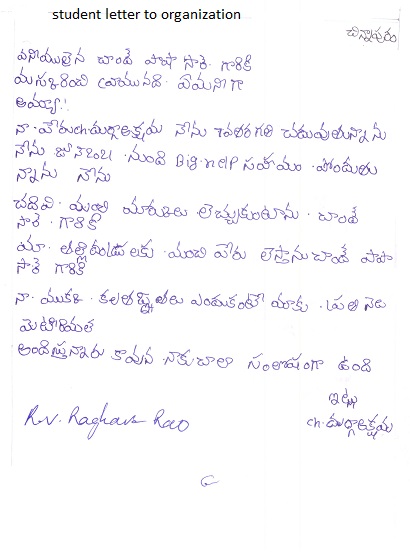 student letter to organization
చిన్నాపురం
చాందే పాషా సార్ గారికి
వ్రాయునది ఏమనగా
అమ్మా!
నా పేరు ch దుర్గాలక్ష్మి నేను 7వ తరగతి చదువుతున్నాను
నేను జూన్ నుండి Big help సహాయం పొందుతు
న్నాను నేను
చదివి మంచి మార్కులు తెచ్చుకుంటాను చాందే
సార్ గారికి
మా తల్లి దండ్రులకు మంచి పేరు తెస్తాను చాందే పాషా
సార్ గారికి
నా కృతజ్ఞతలు ఎందుకంటే మాకు ప్రతి నెల
మెటీరియల్
అందిస్తున్నారు కావున నాకు చాలా సంతోషంగా ఉంది
ఇట్లు
ch. దుర్గాలక్ష్మి
R.V. Raghava Rao